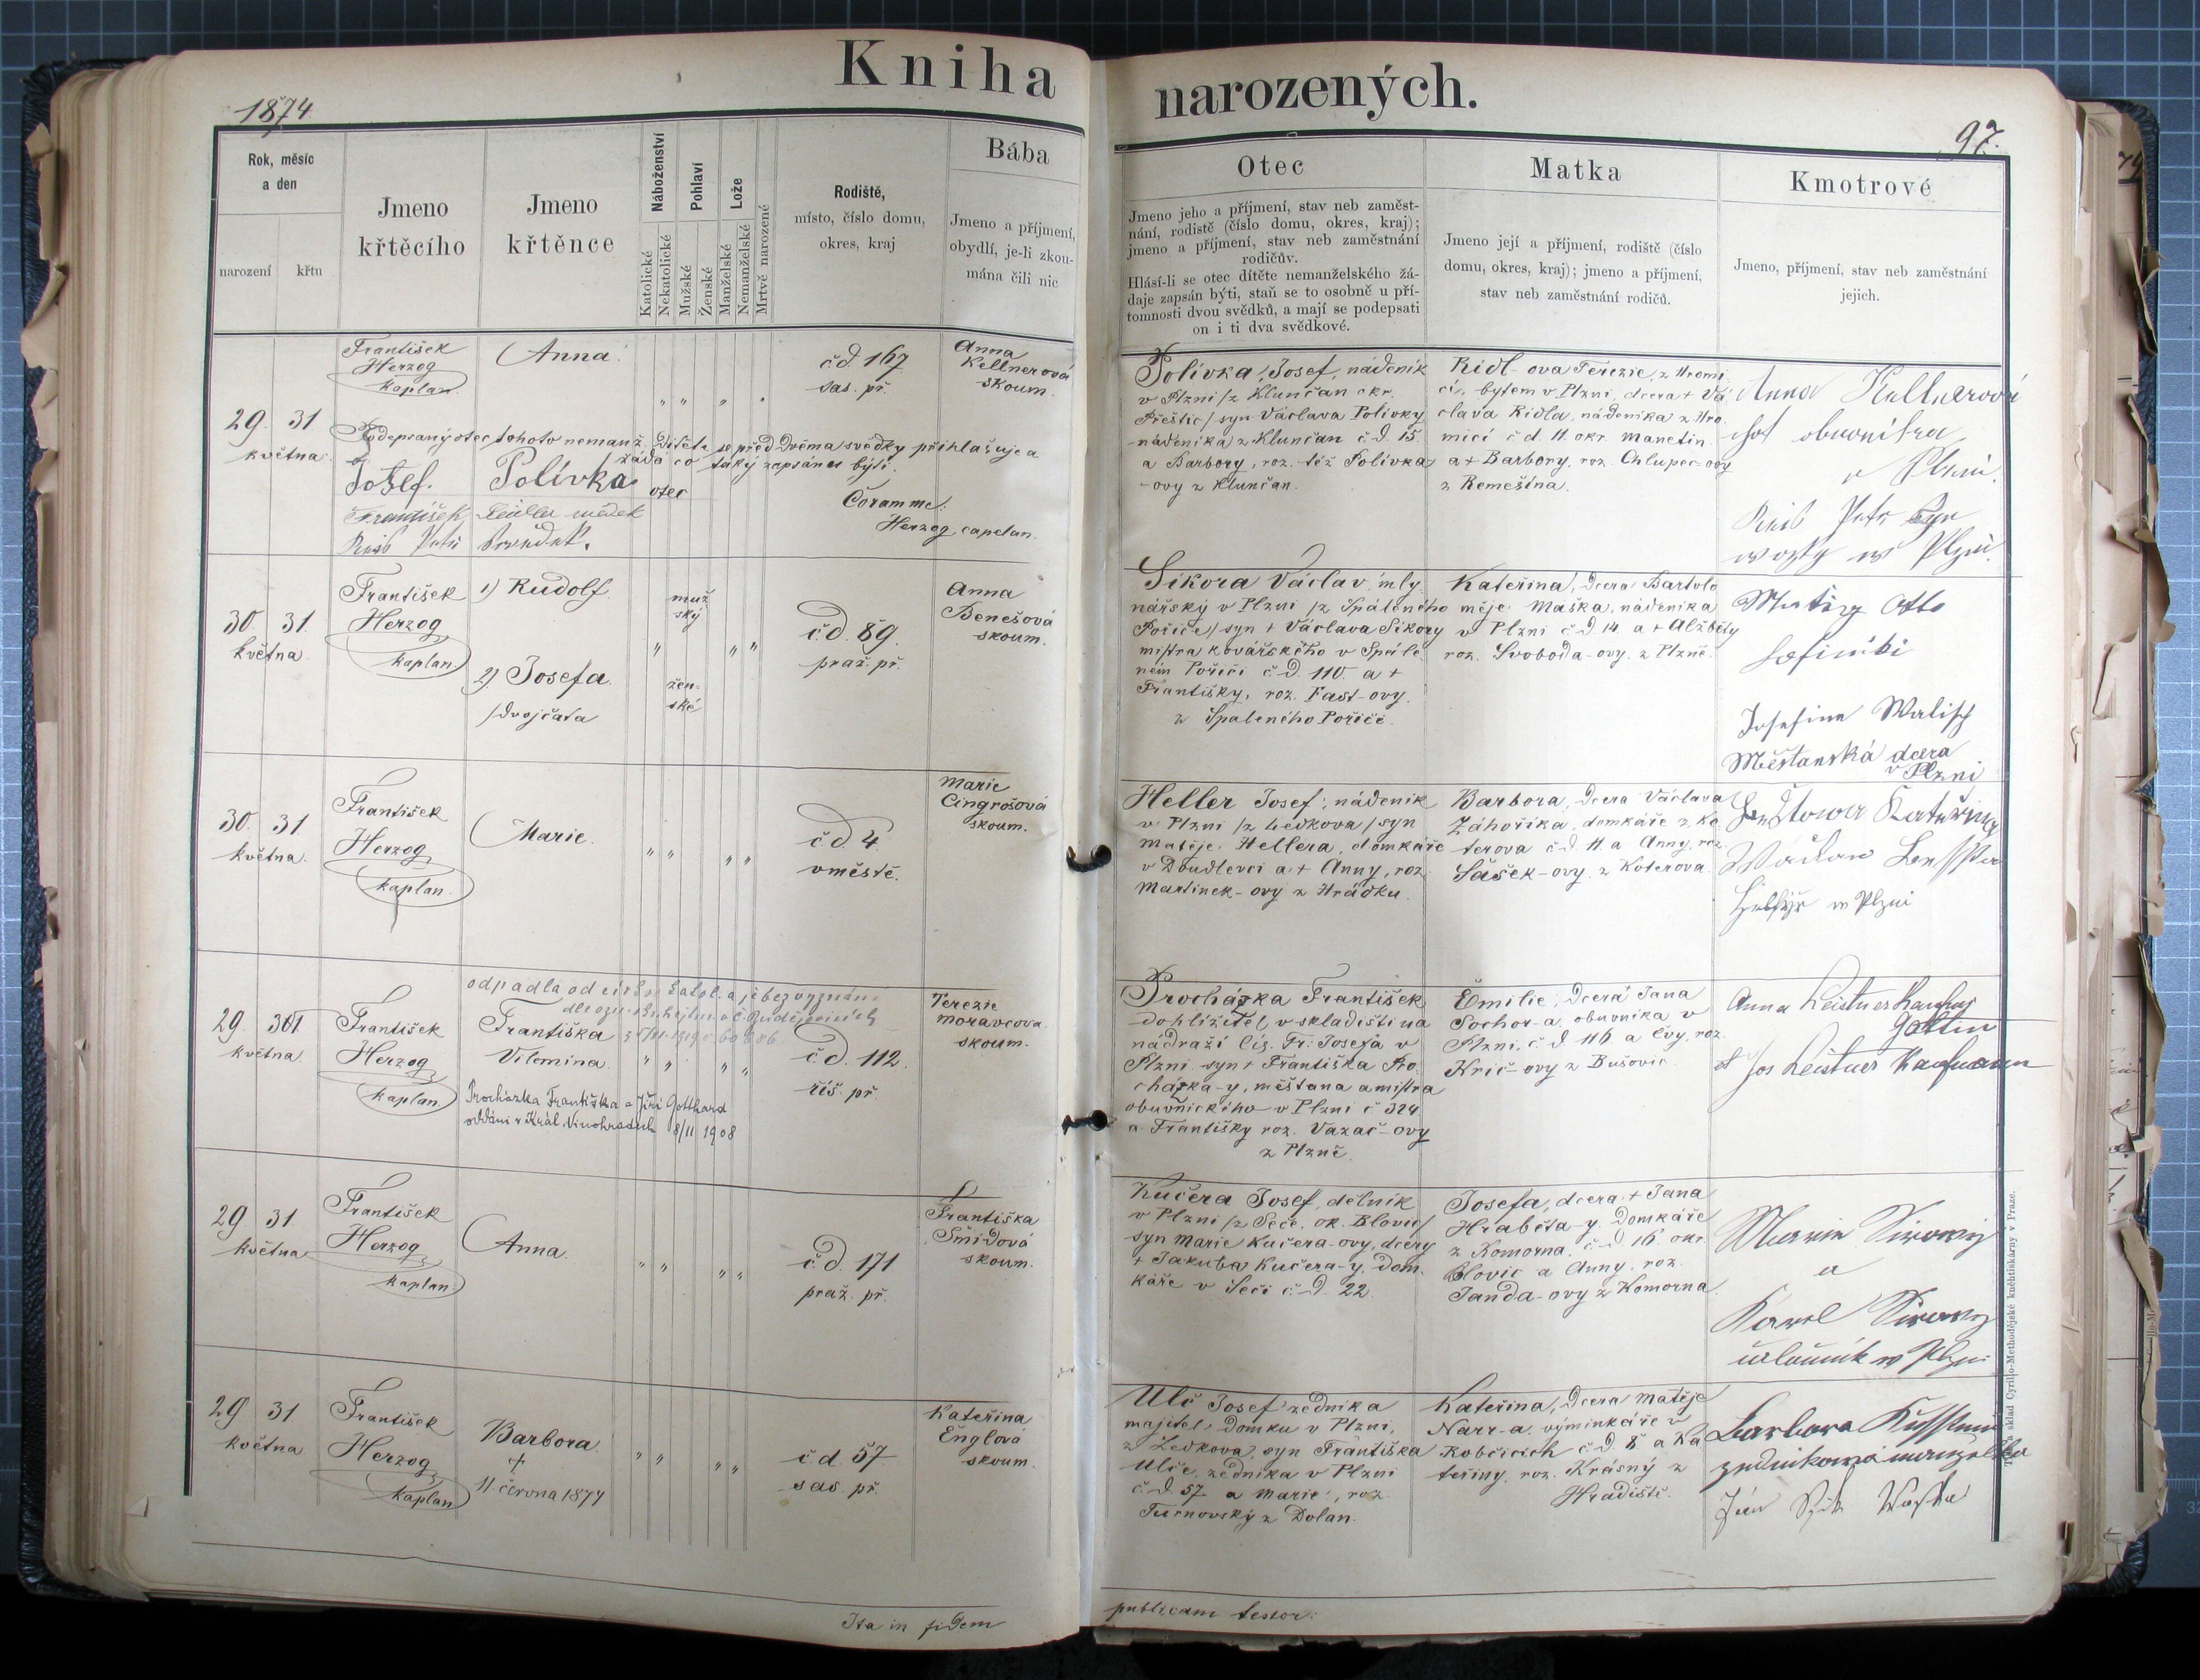 Kniha
narozených.
1874
97.
Rok, měsíc
a den
narození
křtu
Jmeno
křtěcího
Jmeno
křtěnce
Náboženství
Katolické
Nekatolické
Pohlaví
Mužské
Ženské
Lože
Manželské
Nemanželské
Mrtvě narozené
Rodiště,
místo, číslo domu,
okres, kraj
Bába
Jmeno a příjmení,
obydlí, je-li zkou-
mána čili nic
Otec
Jmeno jeho a příjmení, stav neb zaměst-
nání, rodiště (číslo domu, okres, kraj);
jmeno a příjmení, stav neb zaměstnání
rodičův.
Hlásí-li se otec dítěte nemanželského žá-
daje zapsán býti, staň se to osobně u pří-
tomnosti dvou svědků, a mají se podepsati
on i ti dva svědkové.
Matka
Jmeno její a příjmení, rodiště (číslo
domu, okres, kraj); jmeno a příjmení,
stav neb zaměstnání rodičů.
Kmotrové
Jmeno, příjmení, stav neb zaměstnání
jejich.
29. 31
května.
František
Herzog
kaplan
Anna.
č.d. 167
sas. př.
Anna
Kellnerová
skoum.
Podepsaný otec tohoto nemanž. Dítěte se před Dvěma svědky přihlašuje a
žádá co taký zapsánu býti.
Josef. Polívka
otec
František
Coram me:
Herzog, capelan.
Polívka, Josef, nádeník
v Plzni /z Klunčan okr.
Přeštic/ syn Václava Polívky
nádeníka z Klunčan č.d. 15.
a Barbory, roz. též Polívka
-ovy z Klunčan.
Ridl-ova Terezie, z Hromi
cí, bytem v Plzni, dcera + Vá
clava Ridla, nádeníka z Hro
micí č.d. 11. okr. Manetín
a + Barbory, roz. Chlupec-ovy
z Remešína.
Anna Kellnerová
chot obuvníka
v Plzni.
30. 31.
května.
František
Herzog
kaplan
1) Rudolf.
2) Josefa.
/dvojčata
muž
ský
žen-
ské
č.d. 89.
praž. př.
Anna
Benešová
skoum.
Sikora Václav, mly
nářský v Plzni /z Spáleného
Poříčí/ syn + Václava Sikory
mistra kovářského v Spále
ném Poříčí č.d. 110. a +
Františky, roz. Fast-ovy.
z Spaleného Poříčí.
Kateřina, Dcera Bartolo
měje Maška, nádeníka
v Plzni č.d. 14. a + Alžběty
roz. Svoboda-ovy. z Plzně.
Josefine Walisch
Měštanská dcera
v Plzni
30. 31.
května.
František
Herzog
kaplan.
Marie.
č.d. 4.
vměstě.
Marie
Cingrošová
skoum.
Heller Josef, nádeník
v Plzni /z Ledkova/ syn
Matěje Hellera, domkáře
v Doudlevci a + Anny, roz.
Martinek-ovy z Hrádku.
Barbora, Dcera Václava
Záhoříka, domkáře z Ko
terova č.d. 11. a Anny, roz.
Šašek-ovy. z Koterova.
w Plzni
29. 31
května.
František
Herzog
kaplan.
odpadla od církve katol. a je bez vyznání
Františka
Vilemina.
Procházka Františka a Jiří Gotthard
oddáni v Král. Vinohradech 8/11 1908
č.d. 112.
říš. př.
Terezie
Moravcova.
skoum.
Procházka František
doplížitel v skladišti na
nádraží cís. Fr. Josefa v
Plzni syn + Františka Pro
cházka-y, měštana a mistra
obuvnického v Plzni č 324
a Františky roz. Vazač-ovy
z Plzně.
Emilie, Dcera Jana
Sochor-a, obuvníka v
Plzni, č.d. 116. a Evy, roz.
Krič-ovy z Bušovic.
Anna Leistner Kaufms
Gattin
Jos Leistner Kaufmann
29 31.
května
František
Herzog
kaplan
Anna.
č.d. 171
praž. př.
Františka
Šmidová
skoum.
Kučera Josef, dělník
v Plzni /z Seče, ok. Blovic/
syn Marie Kučera-ovy, dcery
+ Jakuba Kučera-y. Dom.
káře v Seči č.d. 22.
Josefa, dcera + Jana
Hraběta-y. Domkáře
z Komorna. č.d. 16. okr.
Blovic a Anny, roz.
Janda-ovy z Komorna.
a
29 31
května
František
Herzog
kaplan
Barbora.
+
11. června 1874
č.d. 57
sas. př.
Kateřina
Englová
skoum.
Ulč Josef zedník a
majitel Domku v Plzni,
z Ledkova, syn Františka
Ulče, zedníka v Plzni
č.d. 57. a Marie, roz.
Turnovský z Dolan.
Kateřina, Dcera Matěje
Narr-a, výminkáře v
Robčicích č.d. 8 a Ka
teřiny, roz. Krásný z
Hradiště.
Barbora
Ita in fidem
publicam testor: